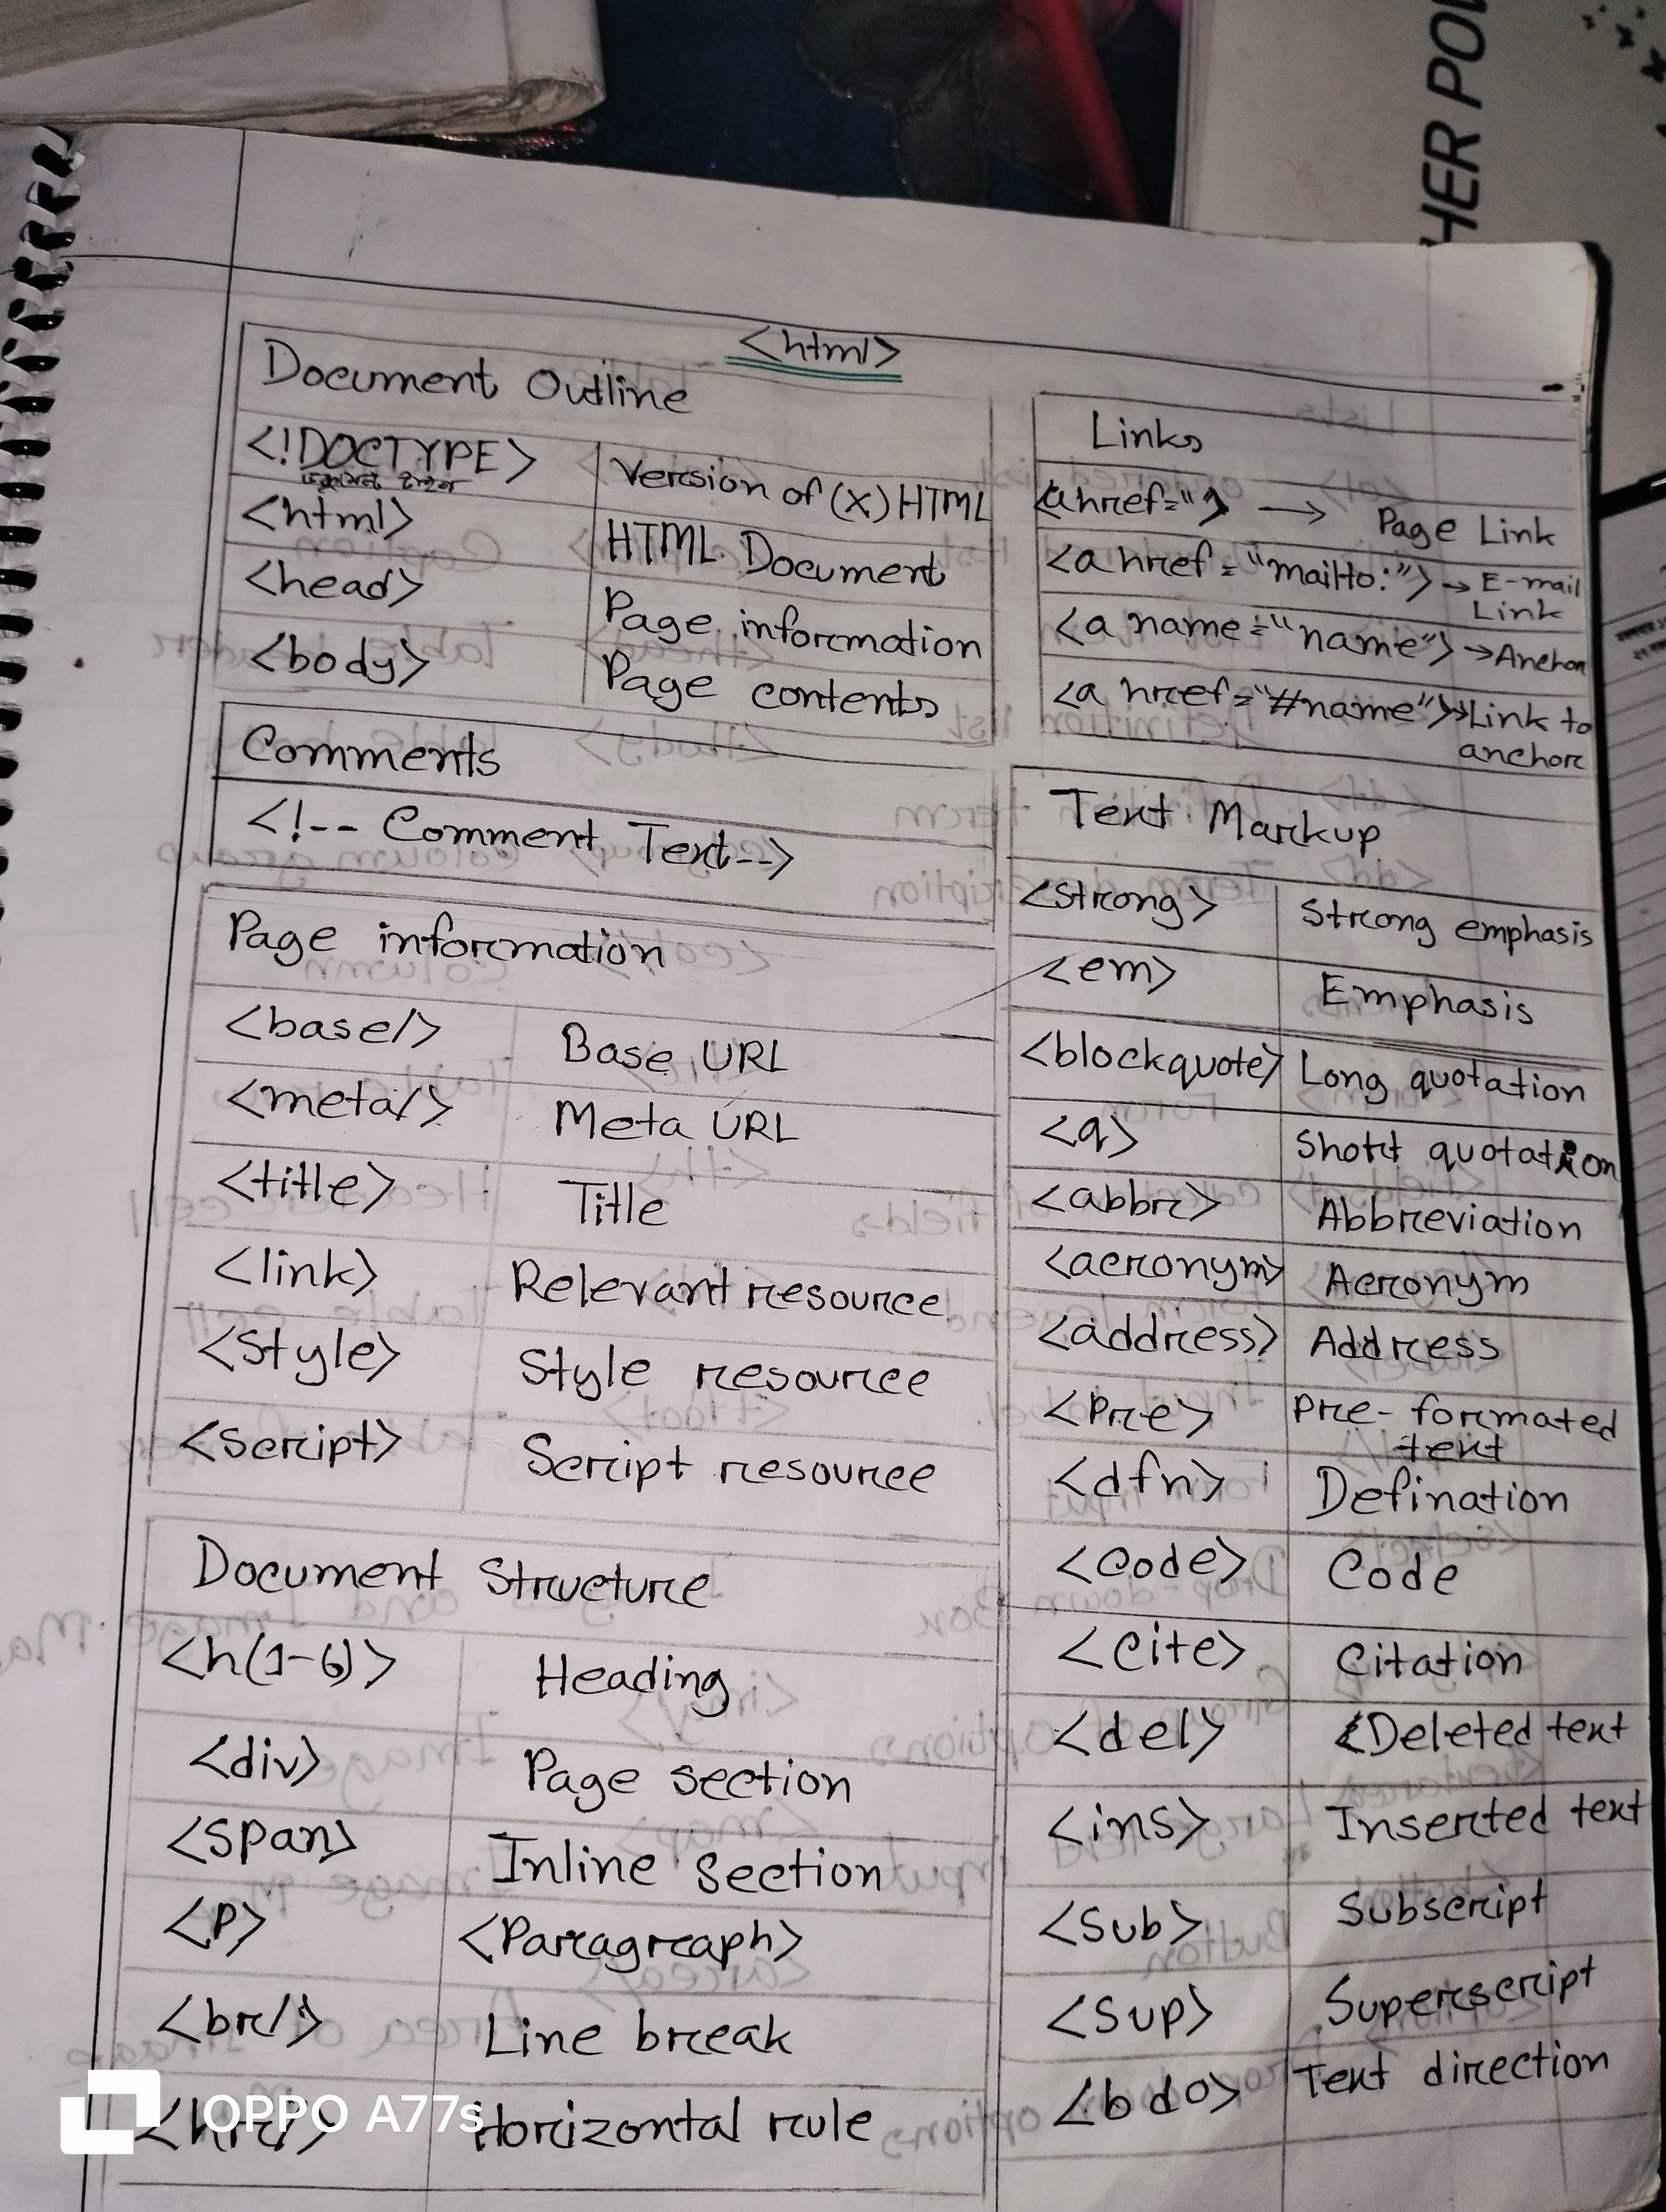 HER POW
<html>
Document Outline
<!DOCTYPE> Version of (X) HTML
ডকুমেন্ট টাইপ
<html> HTML Document
<head> Page information
<body> Page contents
Comments
<!-- Comment Text-->
Page information
<base/> Base URL
<meta/> Meta URL
<title> Title
<link> Relevant resource
<Style> Style resource
<script> Script resource
Document Structure
<h(1-6)> Heading
<div> Page section
<span> Inline section
<P> <Paragraph>
<br/> Line break
<hr/> Horizontal rule
Links
<a href=""> → Page Link
<a href="mailto:"> → E-mail
Link
<a name="name"> → Anchor
<a href="#name"> → Link to
anchor
Text Markup
<strong> Strong emphasis
<em> Emphasis
<blockquote> Long quotation
<q> Short quotation
<abbr> Abbreviation
<acronym> Acronym
<address> Address
<Pre> Pre-formated
text
<dfn> Defination
<code> Code
<cite> Citation
<del> Deleted text
<ins> Inserted text
<sub> Subscript
<sup> Superscript
<bdo> Text direction
OPPO A77s